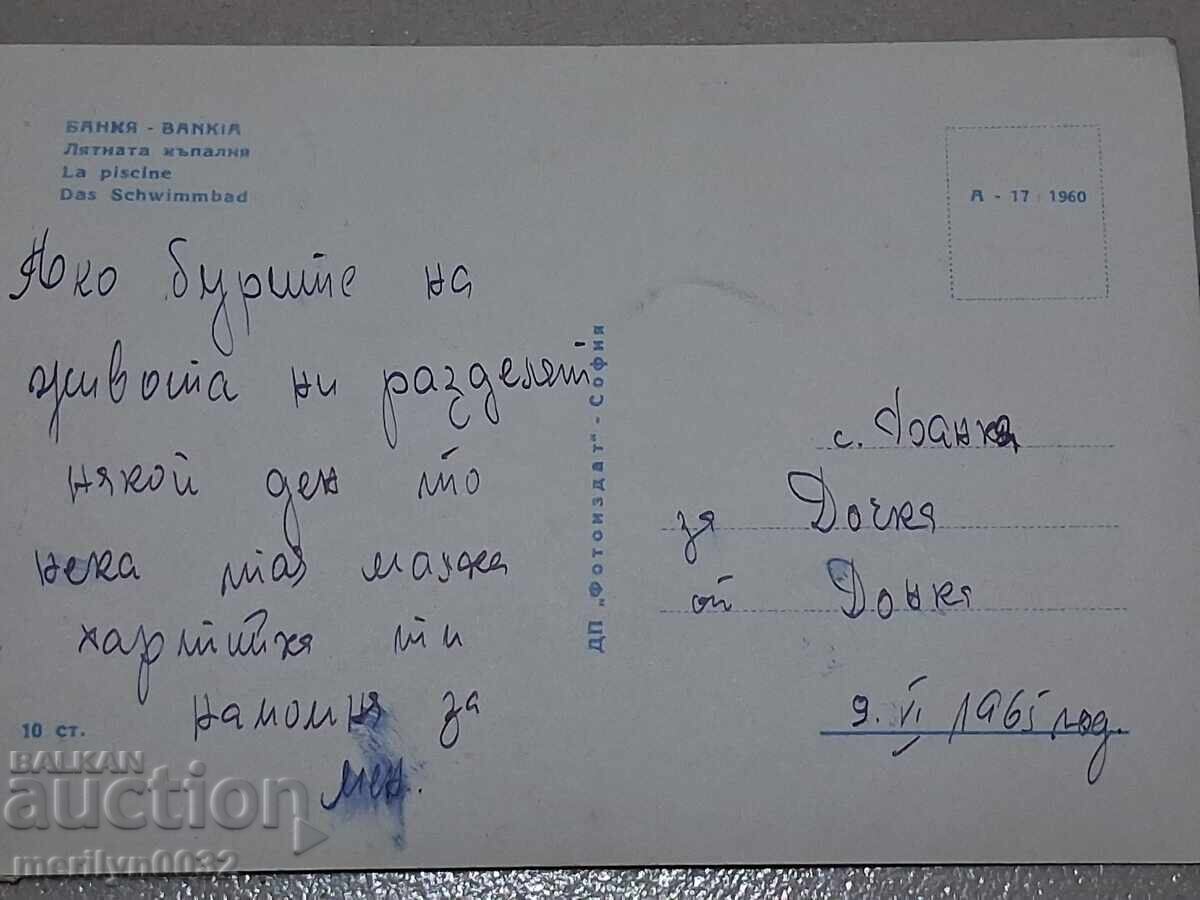 БАНКЯ - BANKIA
Лятната къпалня
La piscine
Das Schwimmbad
Ако бурите на
живота ни разделят
някой ден то
нека тая малка
хартийка ти
напомня за
мен.
10 ст.
ДП „Фотоиздат" - София
А - 17 1960
с.
за Дочка
от Донка
9. VI 1965 год.
BALKAN
auction
merilyn0032